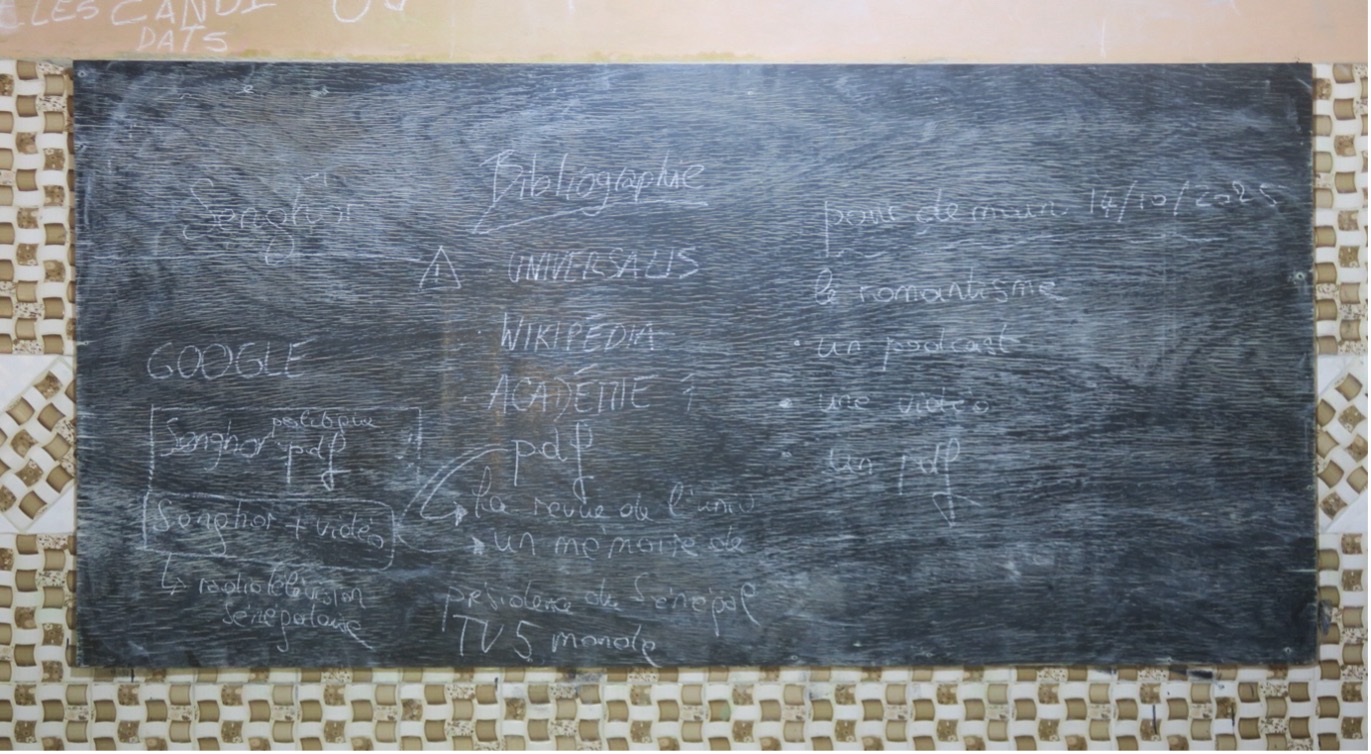 CLES CANDI
DATS
Senghor
GOOGLE
Senghor pdf
Senghor + vidéo
↳ radiotélévision
Sénégalaise
Bibliographie
⚠ UNIVERSALIS
· WIKIPÉDIA
· ACADÉMIE
pdf
la revue de l'univ
un mémoire de
présidence du Sénégal
TV5 monde
pour demain 14/10/2025
le romantisme
• un podcast
• une vidéo
• un pdf